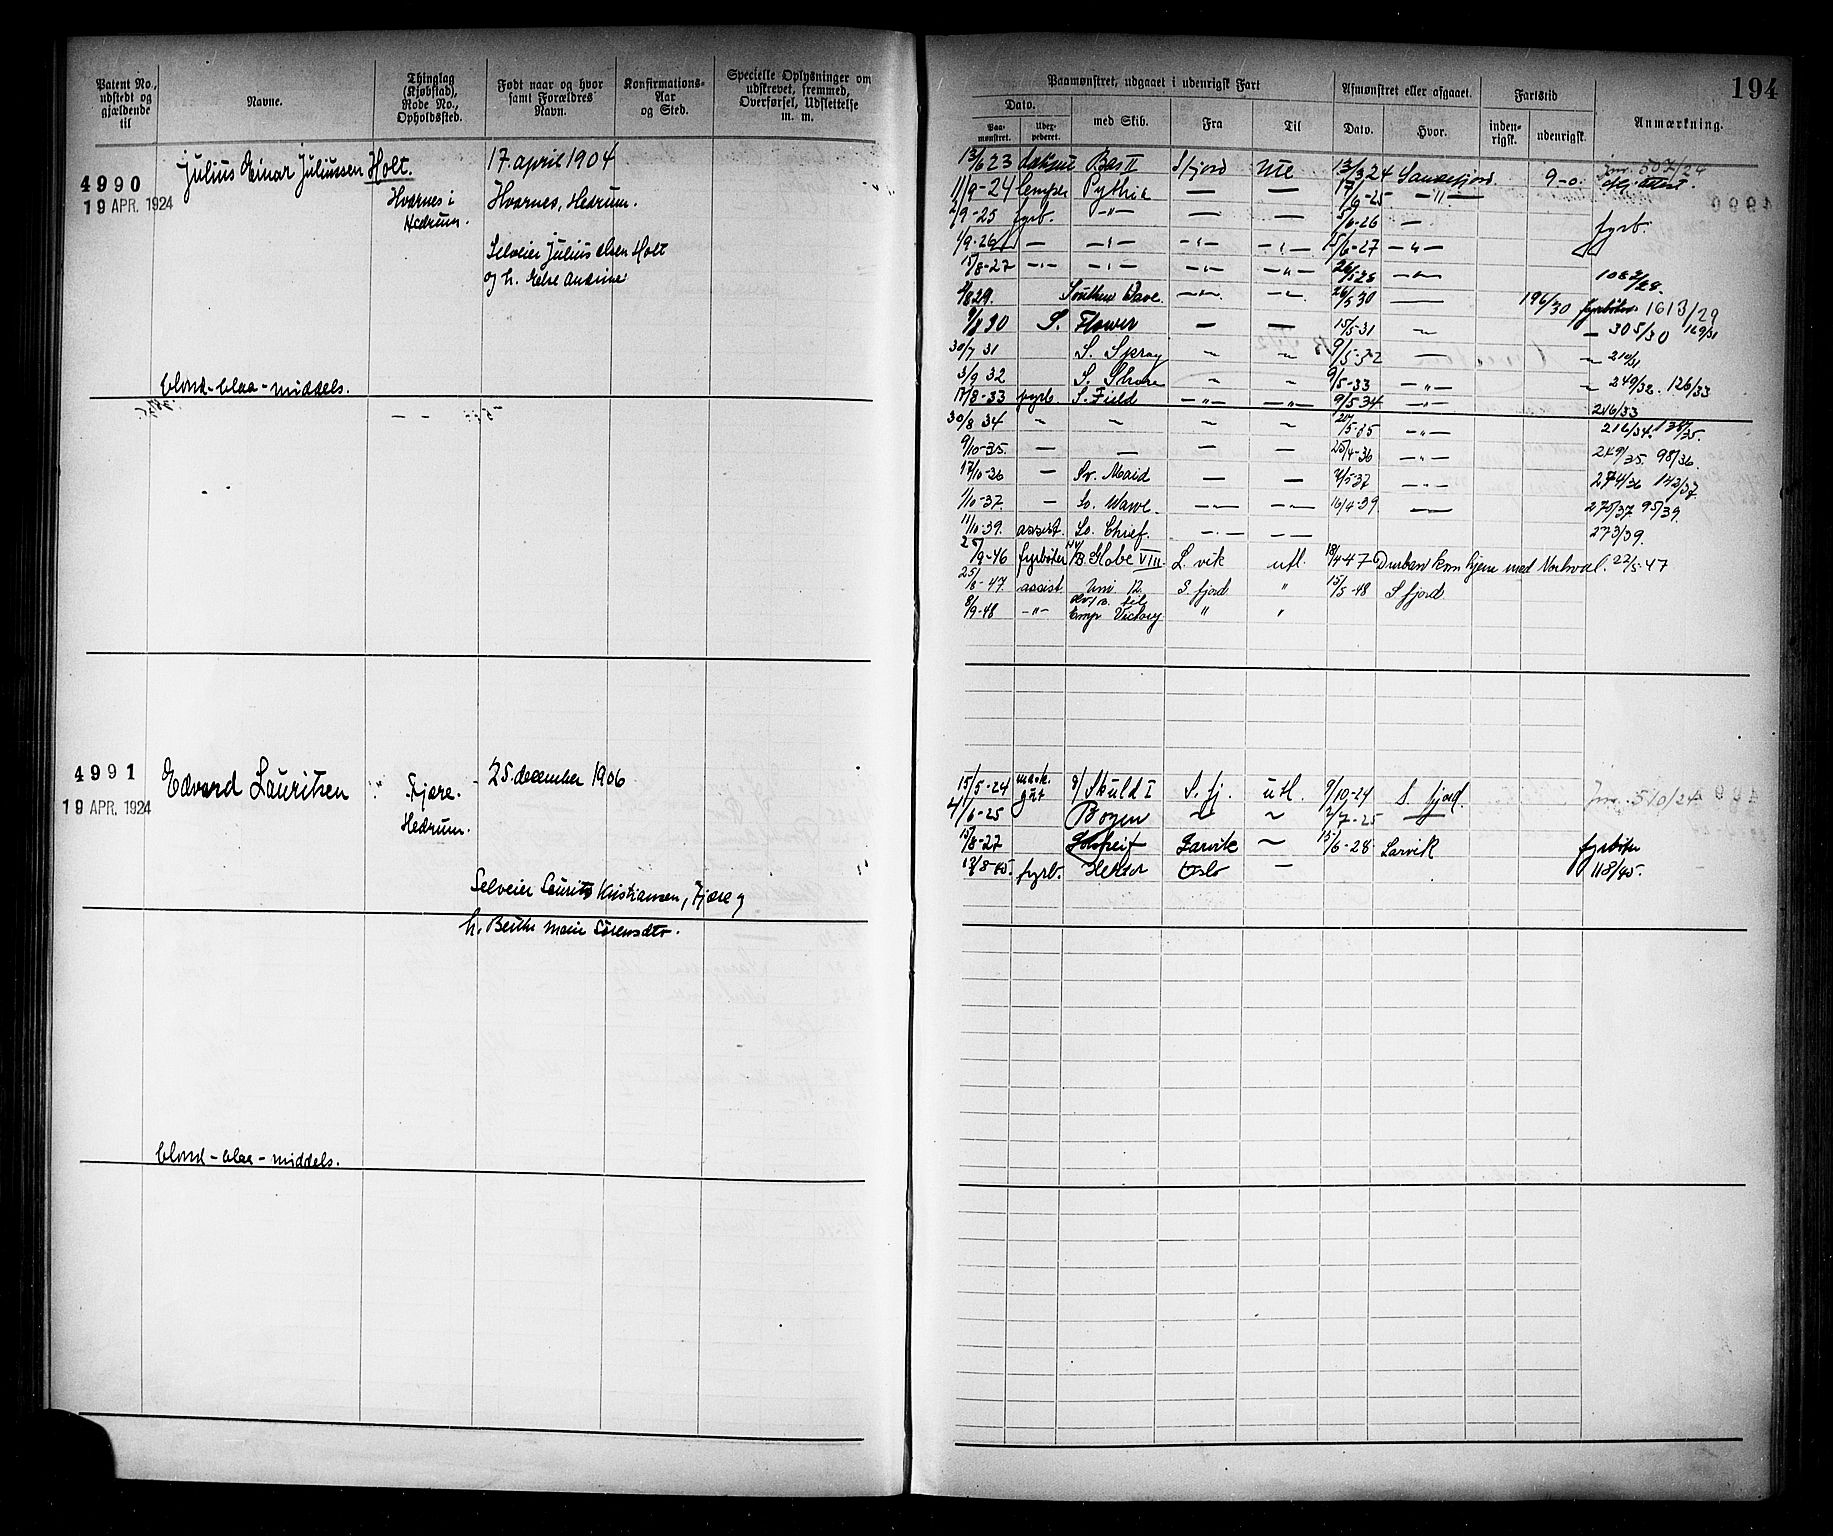 194
Patent No., udstedt og gjældende til
Navne.
Thinglag (Kjøbstad), Rode No., Opholdssted.
Født naar og hvor samt Forældres Navn.
Konfirmations-Aar og Sted.
Specielle Oplysninger om udstrevet, fremmed, Overførsel, Udslettelse m. m.
Paamønstret, udgaaet i udenrigsk Fart
Dato.
Paa-mønstret.
med Skib.
Fra
Til
Afmønstret eller afgaaet.
Dato.
Hvor.
Fartstid
inden-rigsk.
udenrigsk.
Anmærkning.
4990
19 APR. 1924
Julius Einar Juliussen Holt.
Hvarnes i
Hedrum.
17. april 1904
Hvarnes, Hedrum.
Selveier Julius Olsen Holt
og h. Else Andrine
blond - blaa - middels.
13/6 23 Bas II Sfjord Ute 13/3 24 Sandefjord 9-0 Jnr. 507/24
11/9-24 lemper Pythia — — 17/6-25 — " —
2/9-25 fyrb. — " — — — 5/6-26 — fyrb.
1/9-26 — — " — — " — — " — 15/6-27 — " —
15/8-27 — " — — " — — — " — 26/5 28 — " — 1082/28.
4/8 29. Southern Wave — " — — " — 26/5 30 — 196/30 fyrbøter 1613/29
9/8 30 S. Flower — — 15/5-31 — " — 305/30 169/31
30/7 31 S. Spray ~ ~ 9/5-32 — " 210/31
3/9 32 S. Shore ~ ~ 9/5-33 — " — " 249/32. 126/33
17/8-33 fyrb. S. Field — " — — " — 9/5 34 — " — 246/33
30/8 34 ~ ~ ~ ~ 27/5-35 — " — 216/34. 134/35.
9/10-35. — — — — 25/4-36 — " — 249/35. 98/36.
17/10-36 — So. Maid — — 4/5-37 — " — 274/36 142/37.
1/10-37. — So. Wawe. — " — — " — 16/4-39 — " — 275/37 95/39.
11/10-39. assist. So. Chief. — " — — — 273/39.
25/9-46 fyrbøter Globe VIII L. vik utl. 18/4 47 Durban kom hjem med Norhval. 22/5-47
25/8-47. assist Uni 12 S. fjord " 15/5-48 S fjord.
8/9-48 — " — til Emp. Victory " "
4991
19 APR. 1924
Edvard Lauritsen
Fjære.
Hedrum.
25. december 1906
Selveier Laurits Kristiansen, Fjære og
h. Berthe Marie Sørensdtr.
blond - blaa - middels.
15/5-24 gut Skuld I S. fj. utl. 9/10-24 S. fjord. Jnr. 510/24
4/6-25 Bogen ~ ~ 2/7-25 —
15/8-27 Larvik ~ 15/6-28 Larvik fyrbøter
12/8-45. fyrb. Hektor Oslo — 118/45.